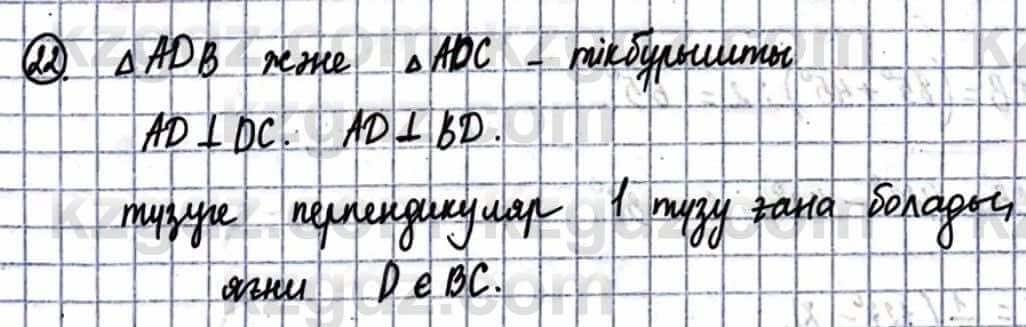 22. △ADB және △ADC - тікбұрышты
AD⊥DC. AD⊥BD.
түзуге перпендикуляр 1 түзу ғана болады,
яғни D∈BC.